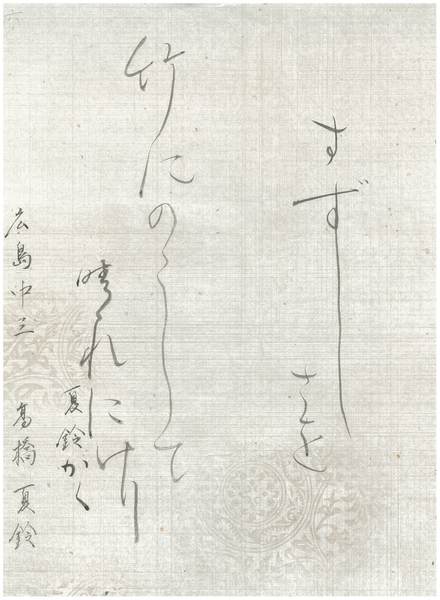 すずしさを
竹にのこして
晴れにけり
夏鈴かく
広島中三 高橋夏鈴